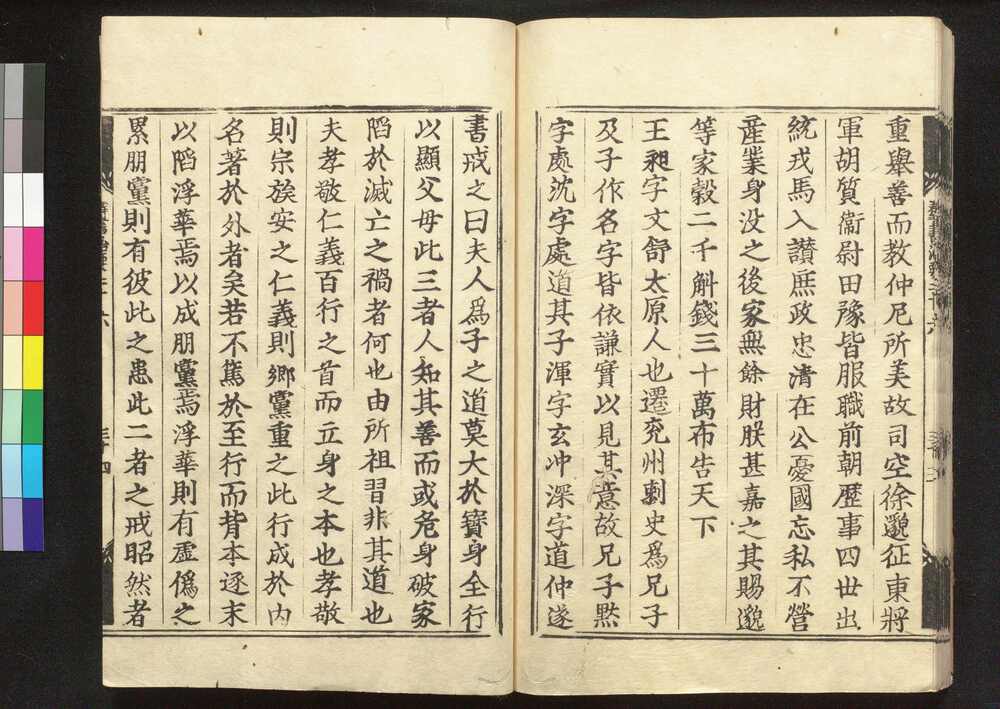 重舉善而教仲尼所美故司空徐邈征東將
軍胡質衞尉田豫皆服職前朝歷事四世出
統戎馬入讃庶政忠清在公憂國忘私不營
產業身没之後家無餘財朕甚嘉之其賜邈
等家穀二千斛錢三十萬布告天下
王昶字文舒太原人也遷兖州剌史爲兄子
及子作名字皆依謙實以見其意故兄子默
字處沈字處道其子渾字玄冲深字道仲遂
書戒之曰夫人爲子之道莫大於寶身全行
以顯父母此三者人知其善而或危身破家
陷於滅亡之禍者何也由所祖習非其道也
夫孝敬仁義百行之首而立身之本也孝敬
則宗族安之仁義則鄉黨重之此行成於内
名著於外者矣若不篤於至行而背本逐末
以陷浮華焉以成朋黨焉浮華則有虛僞之
累朋黨則有彼此之患此二者之戒昭然者